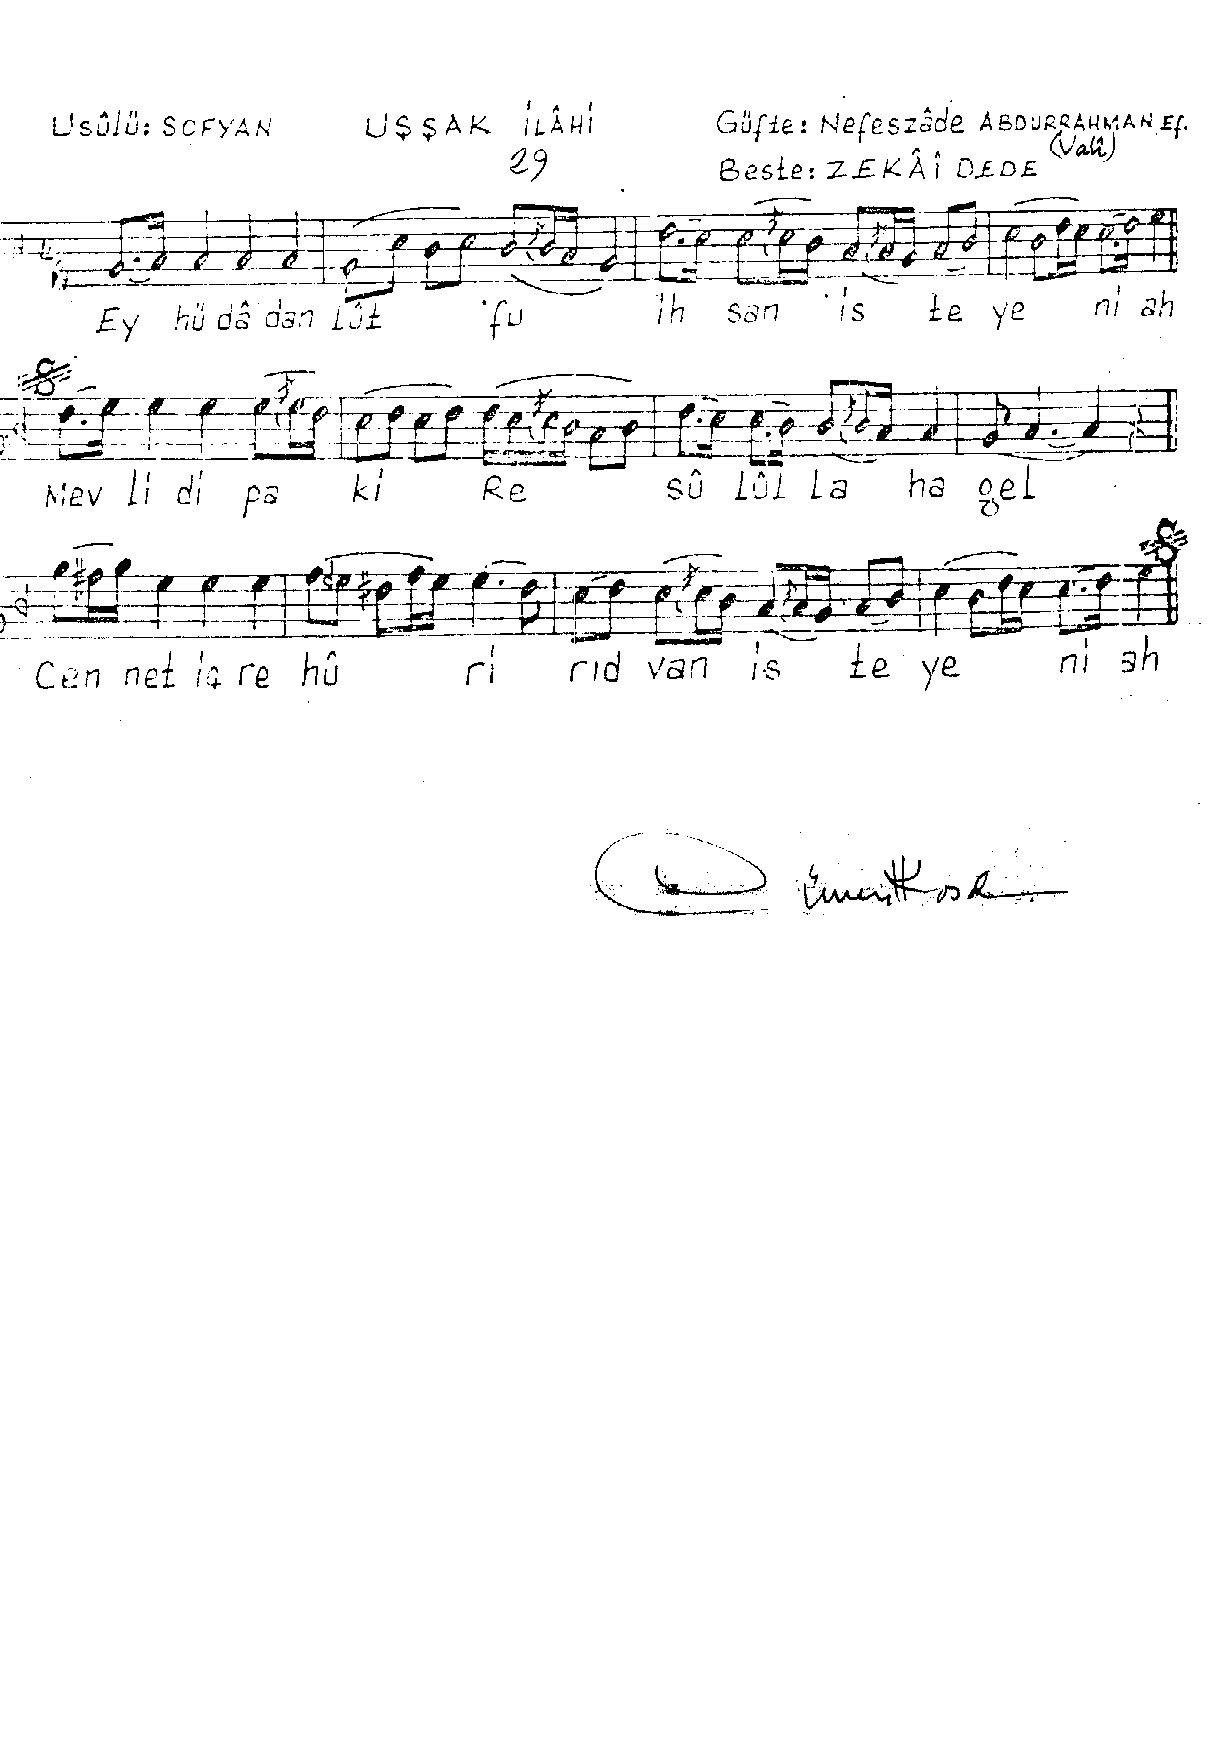 Usûlü: SOFYAN UŞŞAK İLÂHİ Güfte: Nefeszâde ABDURRAHMAN Ef.
29 (Valî)
Beste: ZEKÂÎ DEDE
Ey hü dâ dan lût fu ih san is te ye ni ah
Mev li di pa ki Re sû lûl la ha gel
Cen net iç re hû ri rıd van is te ye ni ah